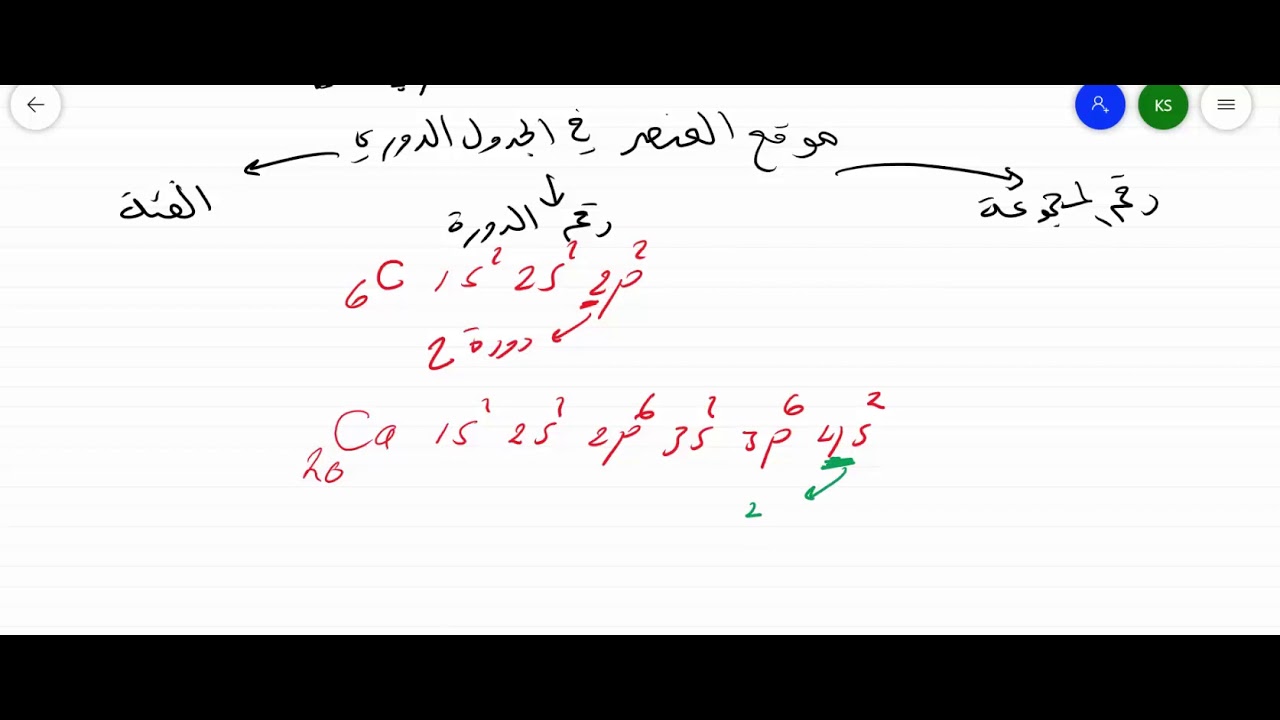 KS
موقع العنصر في الجدول الدوري
رقم المجموعة
رقم الدورة
الفئة
₆C 1s² 2s² 2p²
دورة 2
₂₀Ca 1s² 2s² 2p⁶ 3s² 3p⁶ 4s²
2